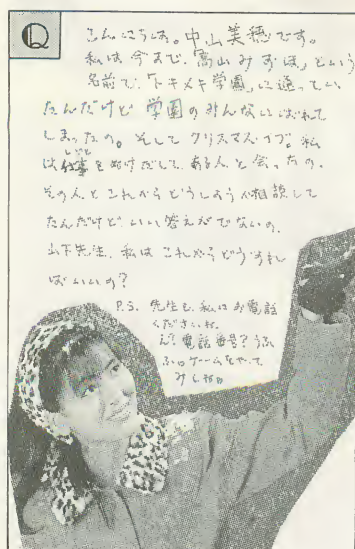 Q
こんにちは。中山美穂です。
私は今まで、「高山みずほ」という
名前で、「トキメキ学園」に通ってい
たんだけど 学園のみんなにばれて
しまったの。そしてクリスマスイブ。私
は仕事をぬけだして、ある人と会ったの。
しごと
その人とこれからどうしようか相談して
たんだけど、いい答えがでないの。
山下先生、私はこれからどうすれ
ばいいの?
P.S. 先生も、私にお電話
くださいね。
え?電話番号?うふ
ふ♡ゲームをやって
みてね